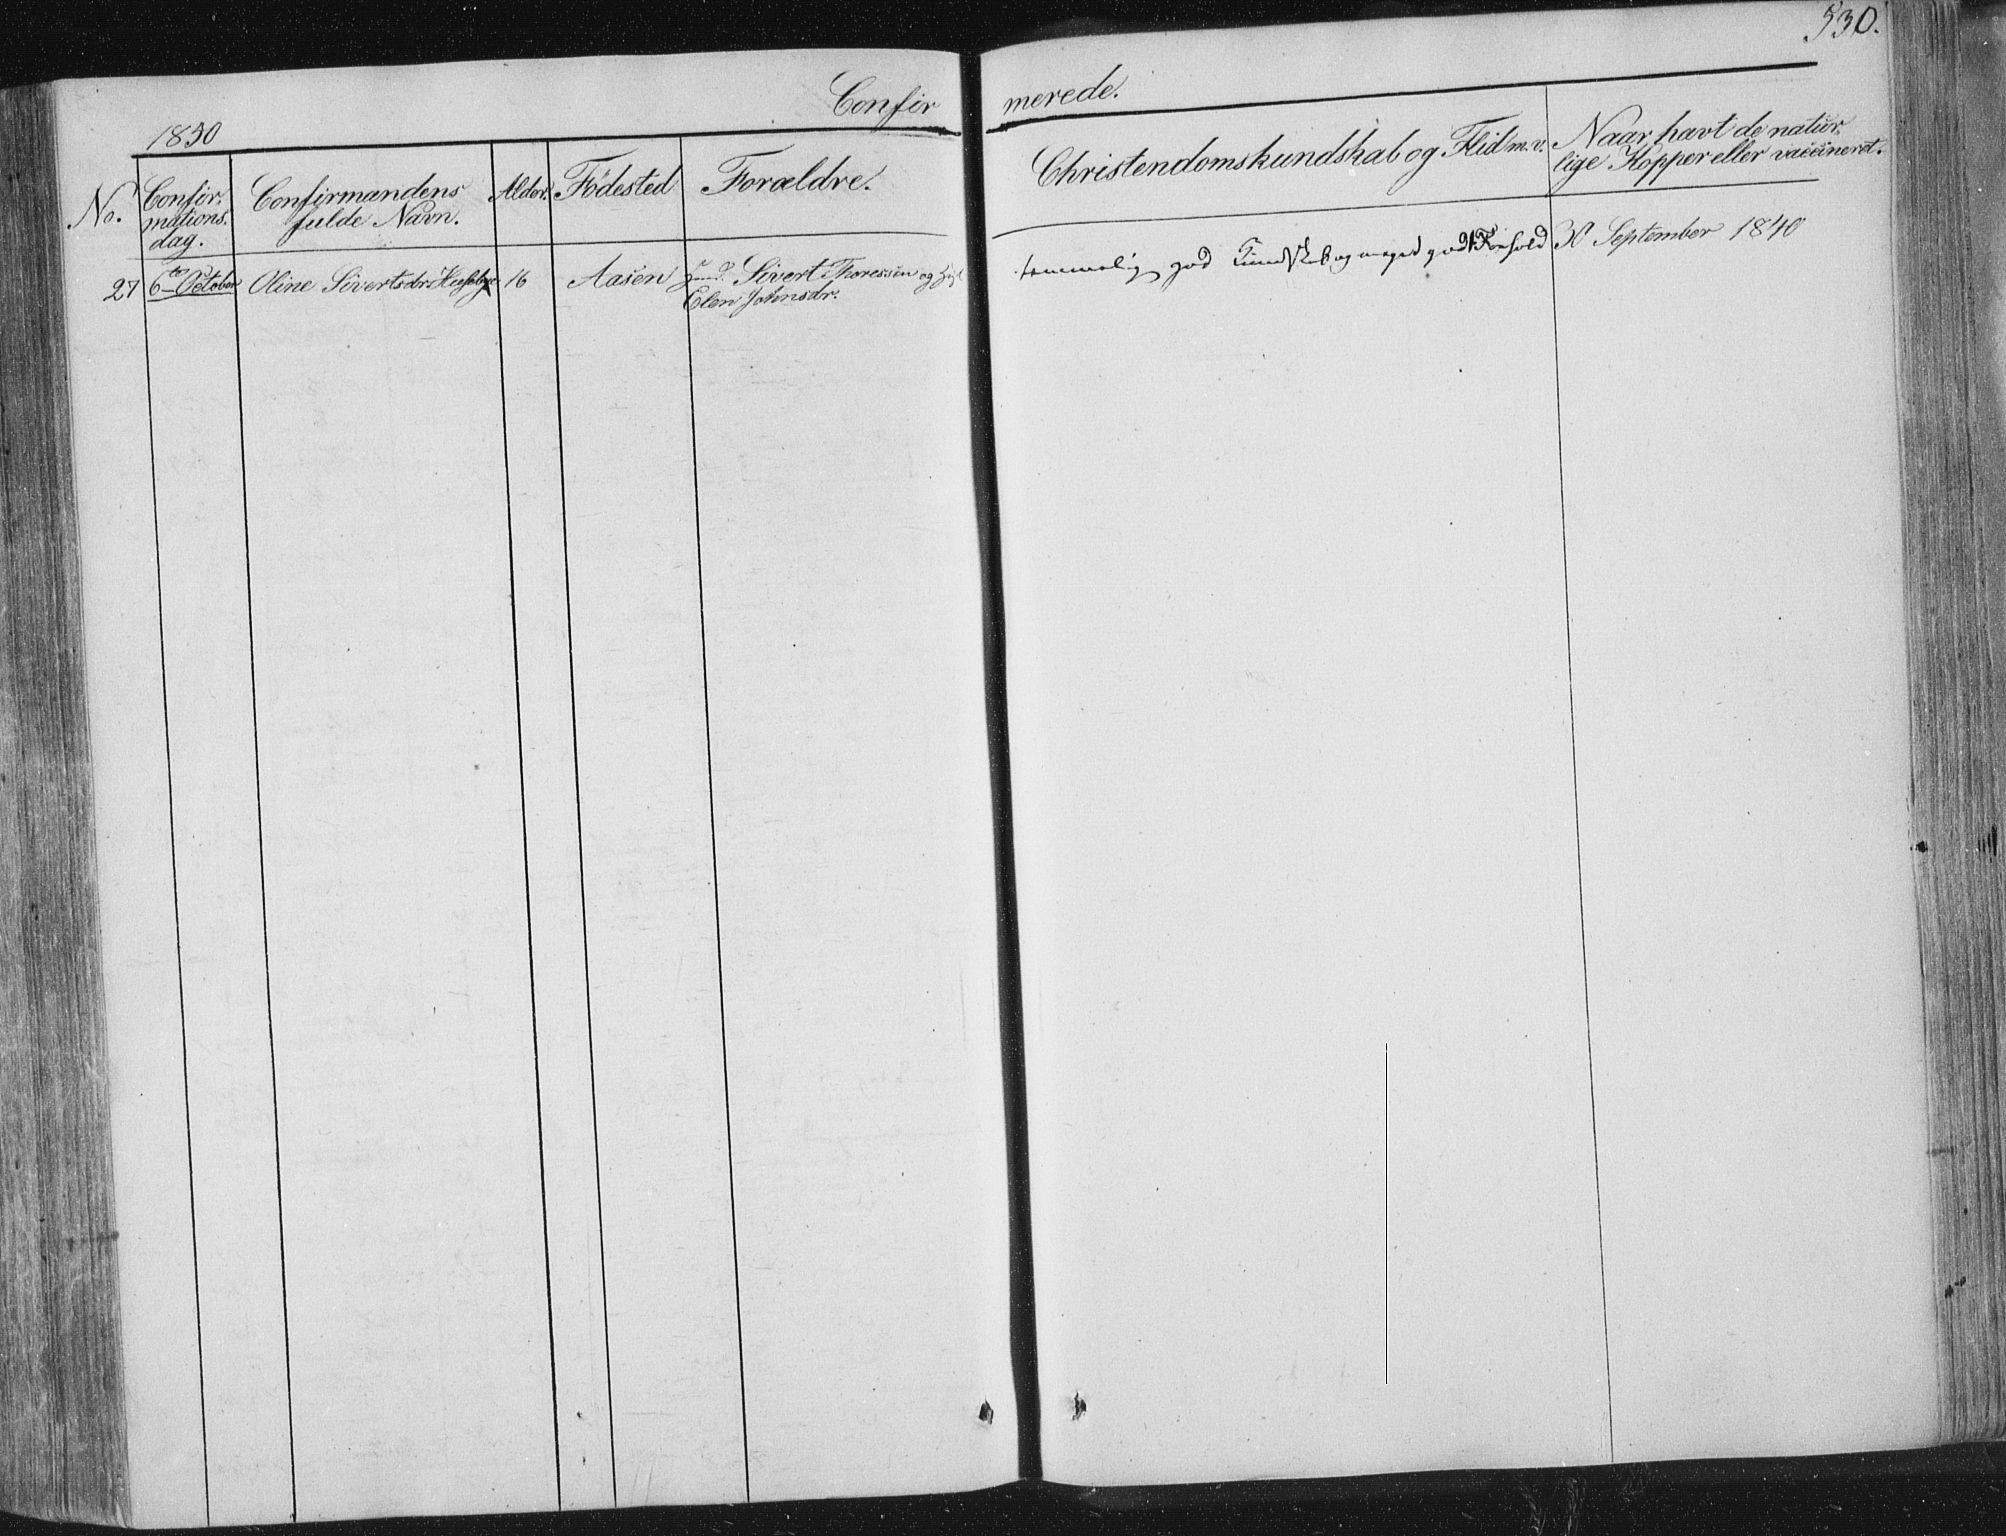 530.
Confirmerede.
1850
No.
Confirmations.
dag.
Confirmandens
fulde Navn.
Alder.
Födested
Forældre.
Christendomskundskab og Flid m.v.
Naar havt de natur,
lige Kopper eller vaccineret.
27
6te October
Oline Sivertsdr
16
Aasen
Sivert Thoressen og
Elen Johnsdr.
temmelig god Kundskab og meget godt Forhold
30 September 1840